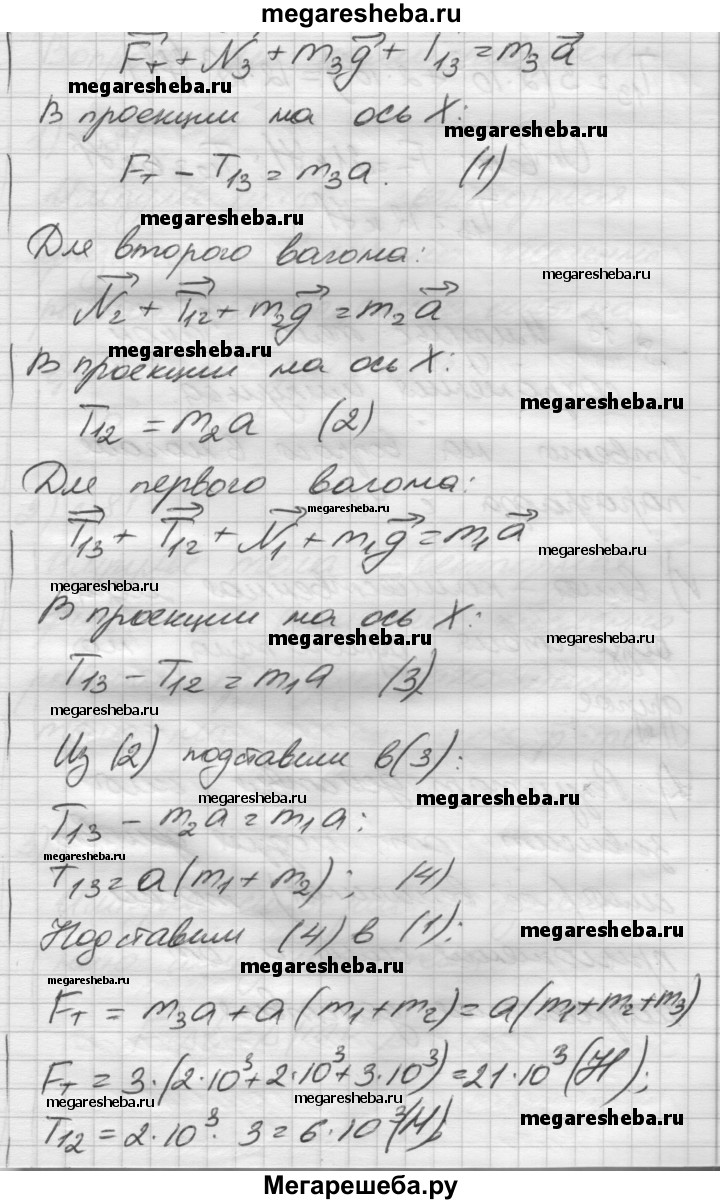 megaresheba.ru
F⃗т + N⃗3 + m3g⃗ + T⃗13 = m3a⃗
megaresheba.ru
В проекции на ось X:
megaresheba.ru
Fт − T13 = m3a. (1)
megaresheba.ru
Для второго вагона:
megaresheba.ru
N⃗2 + T⃗12 + m2g⃗ = m2a⃗
megaresheba.ru
В проекции на ось X:
megaresheba.ru
T12 = m2a (2)
Для первого вагона:
megaresheba.ru
T⃗13 + T⃗12 + N⃗1 + m1g⃗ = m1a⃗
megaresheba.ru
В проекции на ось X:
megaresheba.ru megaresheba.ru
T13 − T12 = m1a (3)
megaresheba.ru
Из (2) подставим в (3):
megaresheba.ru megaresheba.ru
T13 − m2a = m1a;
megaresheba.ru
T13 = a(m1 + m2); (4)
Подставим (4) в (1):
megaresheba.ru
megaresheba.ru
megaresheba.ru
Fт = m3a + a(m1 + m2) = a(m1 + m2 + m3)
Fт = 3·(2·10³ + 2·10³ + 3·10³) = 21·10³ (Н);
megaresheba.ru megaresheba.ru
megaresheba.ru
T12 = 2·10³·3 = 6·10³ (Н)
Мегарешеба.ру